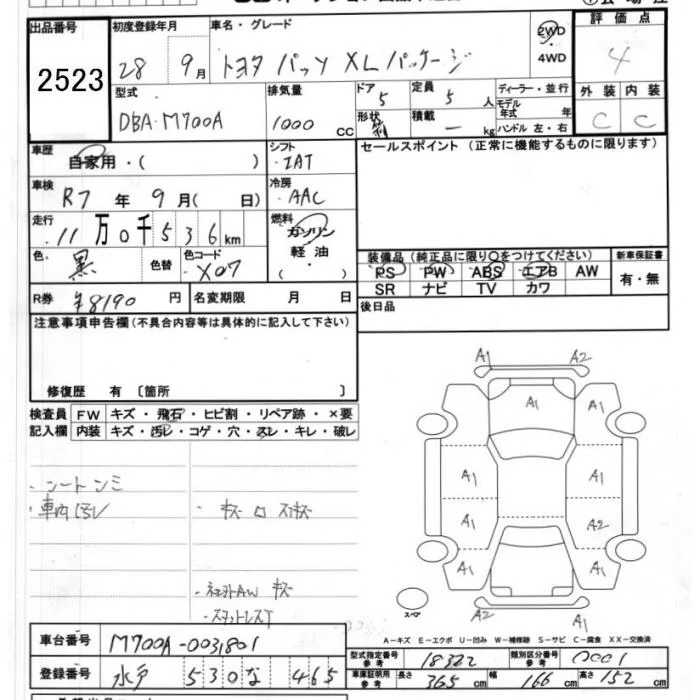 出品番号 初度登録年月 車名・グレード 評価点
2523 28年 9月 トヨタ パッソ XLパッケージ 2WD 4WD 4
型式 排気量 ドア 定員 ディーラー・並行 外装 内装
DBA-M700A 1000 CC 5 5 人 モデル年式 年 C C
形状 積載 ー kg ハンドル 左・右
車歴 自家用・( ) シフト ・IAT セールスポイント (正常に機能するものに限ります)
車検 R7 年 9 月 ( 日) 冷房 ・AAC
走行 11 万 0 千 5 3 6 km 燃料 ガソリン 軽油 ( )
色 黒 色替 色コード ・X07 装備品 (純正品に限り○をつけてください) 新車保証書
PS PW ABS エアB AW 有・無
SR ナビ TV カワ
R券 ¥8190 円 名変期限 月 日 後日品
注意事項申告欄 (不具合内容等は具体的に記入して下さい)
修復歴 有 〔箇所 〕
検査員 FW キズ・飛石・ヒビ割・リペア跡・×要
記入欄 内装 キズ・汚レ・コゲ・穴・スレ・キレ・破レ
A1 A2
A1 A1
A1 A1
A1 A2
A1 A1
A2 A1
スペア
・シートシミ
・車内汚レ
・スタットレスT
A-キズ E-エクボ U-凹み W-補修跡 S-サビ C-腐食 XX-交換済
車台番号 M700A-0031801
型式指定番号 参考 18322 類別区分番号 参考 0001
登録番号 水戸 530 な 465
車庫証明用 参考 長さ 365 cm 幅 166 cm 高さ 152 cm